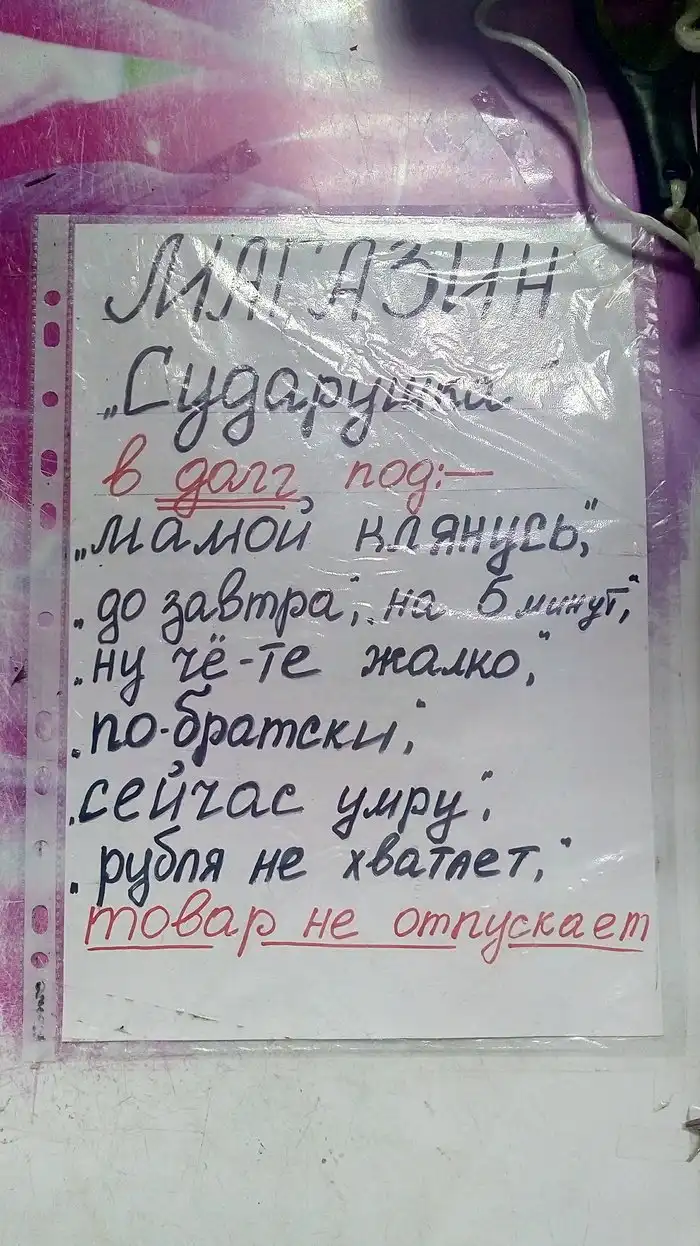 МАГАЗИН
„Сударушка"
в долг под:—
„мамой клянусь,"
„до завтра", „на 5 минут,"
„ну чё-те жалко,"
„по-братски,"
„сейчас умру",
„рубля не хватает,"
товар не отпускает